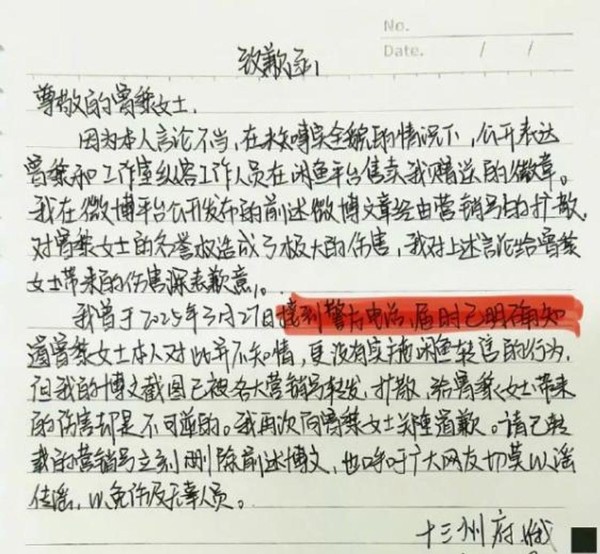 No.
Date. / /
致歉函
尊敬的曾黎女士.
因为本人言论不当，在未知事实全貌的情况下，公开表达
曾黎和工作室纵容工作人员在闲鱼平台售卖我赠送的徽章。
我在微博平台公开发布的前述微博文章经由营销号的扩散，
对曾黎女士的名誉权造成了极大的伤害，我对上述言论给曾黎
女士带来的伤害深表歉意。
我曾于2025年3月27日接到警方电话，届时已明确知
道曾黎女士本人对此并不知情，更没有实施闲鱼转售的行为，
但我的博文截图已被各大营销号转发，扩散，给曾黎女士带来
的伤害却是不可逆的。我再次向曾黎女士郑重道歉。请已转
载的营销号立刻删除前述博文，也呼吁广大网友切莫以谣
传谣，以免伤及无辜人员。
十三州府